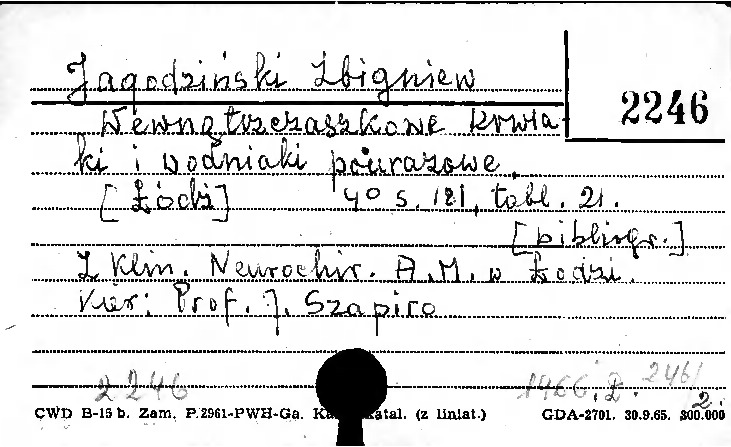 Jagodziński Zbigniew
2246
Wewnątrzczaszkowe krwia-
ki i wodniaki pourazowe.
[Łódź] 40 s. 181, tabl. 21.
[bibliogr.]
Z Klin. Neurochir. A.M. w Łodzi.
Kier: Prof. J. Szapiro
2246
1966. P. 246/
2.
CWD B-15 b. Zam. P.2961-PWH-Ga. Katal. (z liniat.) GDA-2701. 30.9.65. 300.000